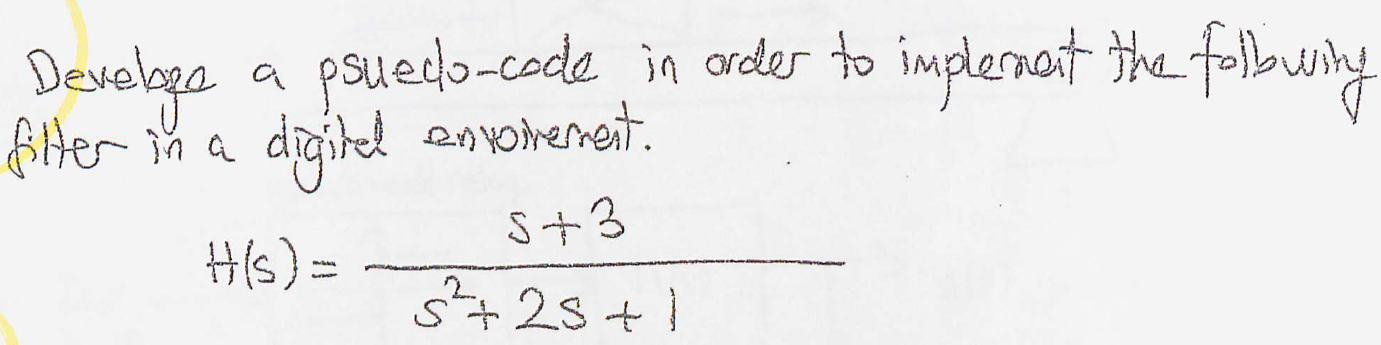 Develope a psuedo-code in order to implement the following
filter in a digital envoirement.
H(s) = s+3 / s²+2s+1